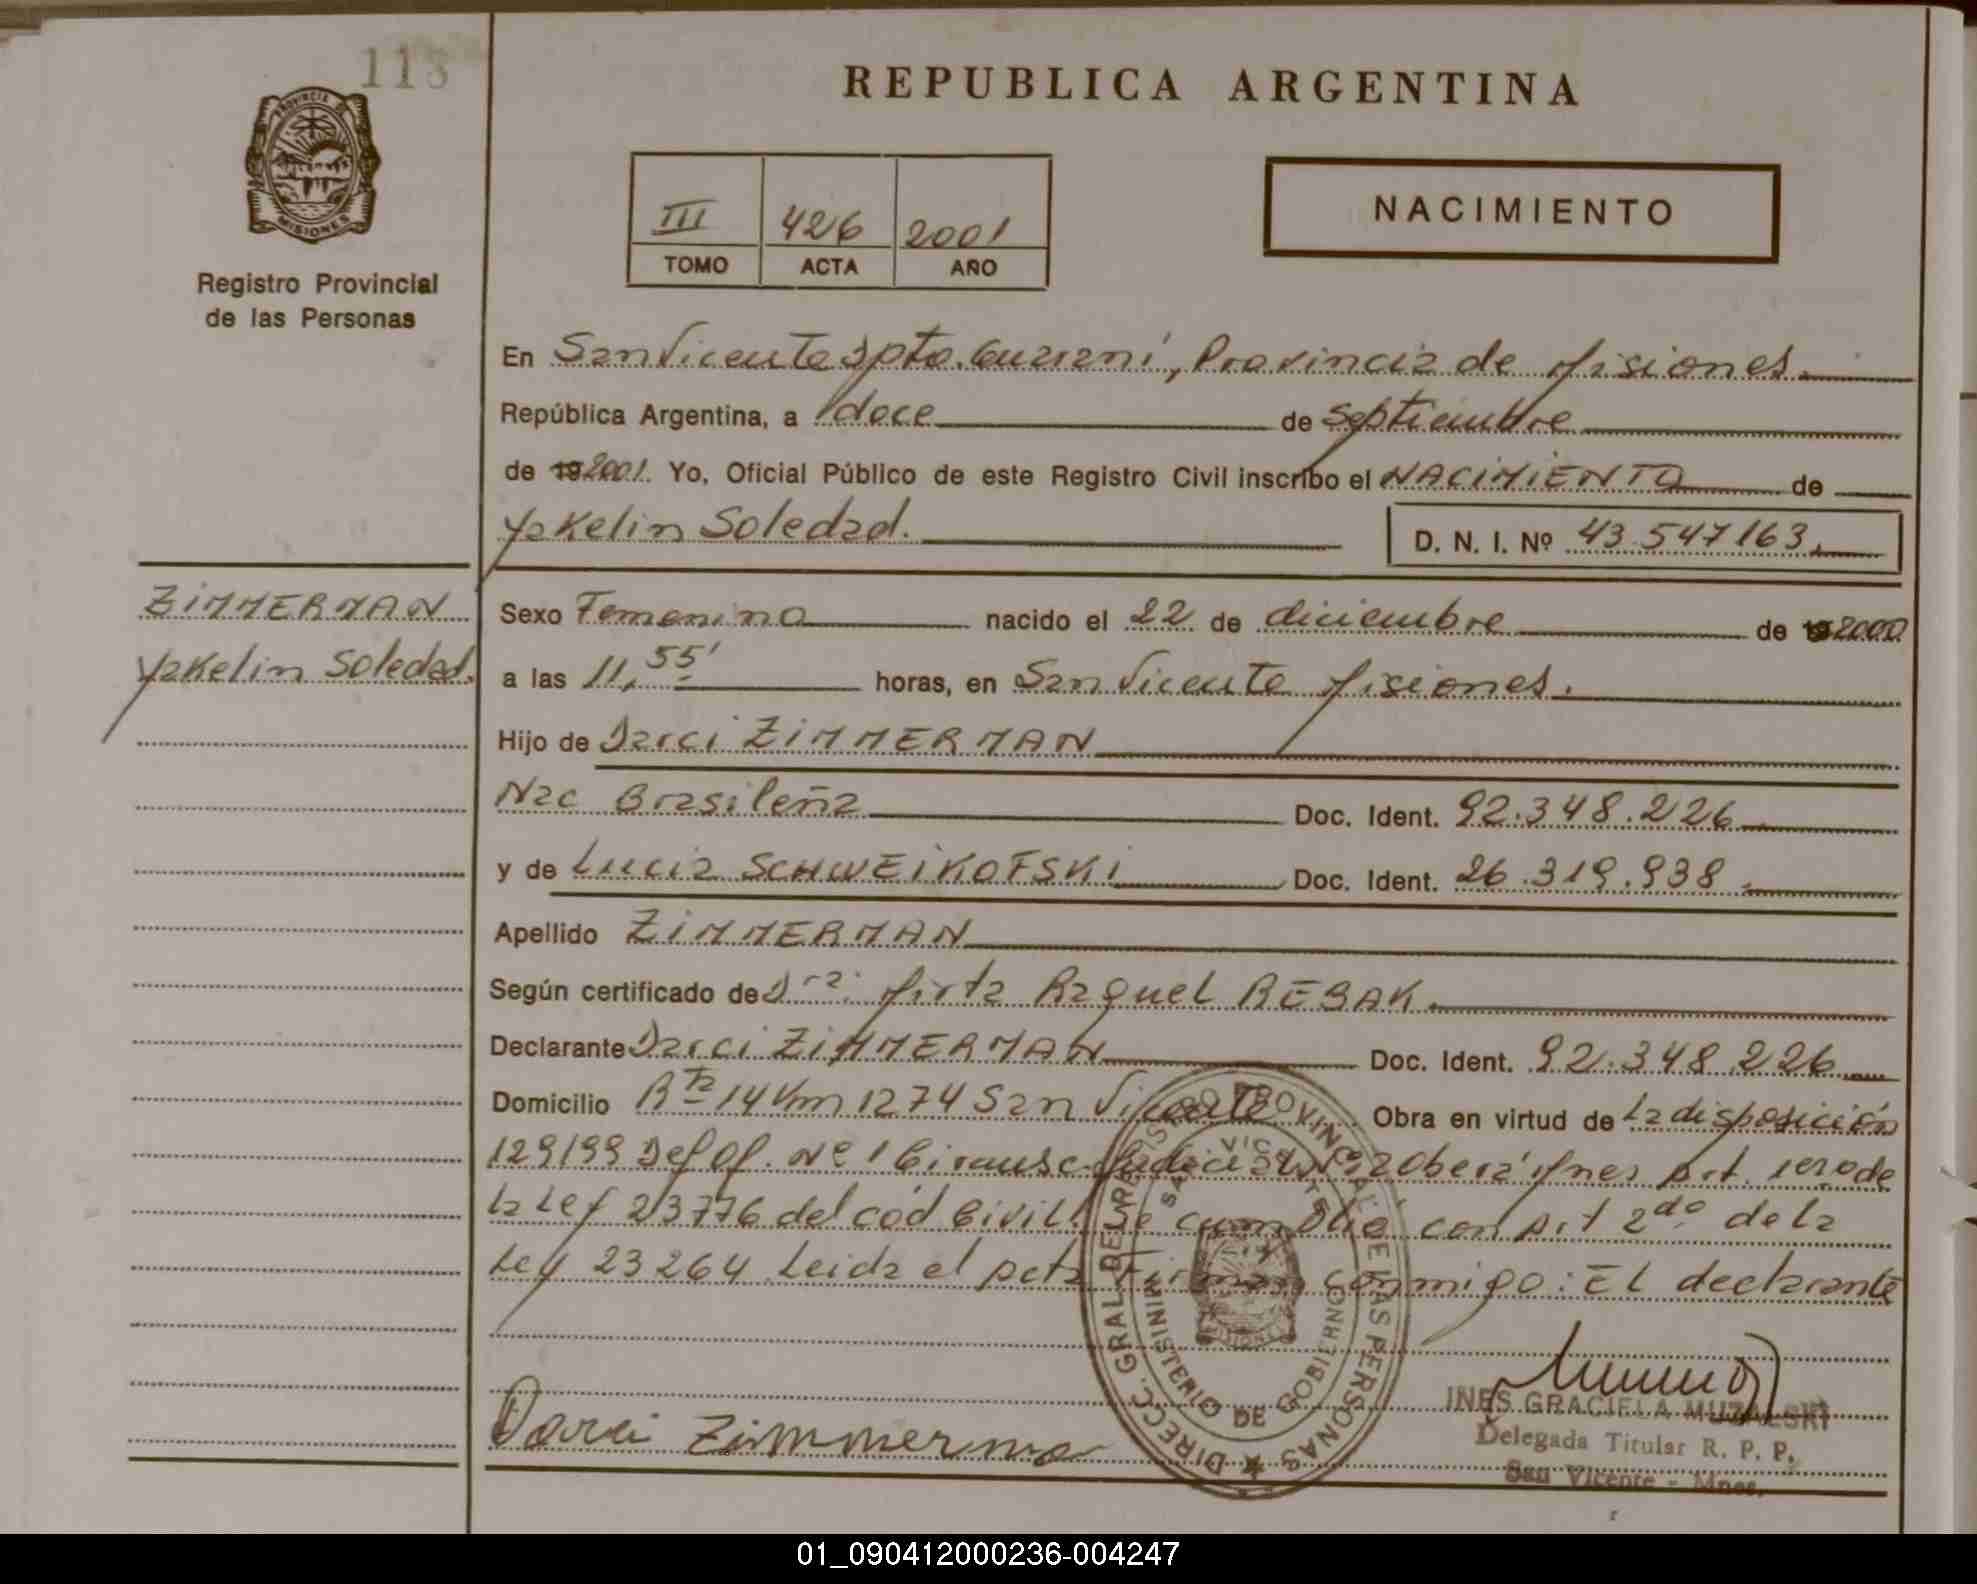 113
REPUBLICA ARGENTINA
PROVINCIA DE
MISIONES
Registro Provincial
de las Personas
III 426 2001
TOMO ACTA AÑO
NACIMIENTO
En San Vicente Dpto. Guarani, Provincia de Misiones.
República Argentina, a doce de Septiembre
de 19 2001. Yo, Oficial Público de este Registro Civil inscribo el NACIMIENTO de
Yakelin Soledad. D. N. I. Nº 43.547163.
ZIMMERMAN
Yakelin Soledad.
Sexo Femenino nacido el 22 de diciembre de 19 2000
a las 11,55' horas, en San Vicente Misiones.
Hijo de Darci ZIMMERMAN
Nac Brasileña Doc. Ident. 92.348.226
y de Lucia SCHWEIKOFSKI Doc. Ident. 26.319.938.
Apellido ZIMMERMAN
Según certificado de Dra. Mirta Raquel REBAK.
Declarante Darci ZIMMERMAN Doc. Ident. 92.348.226
Domicilio Rta 14 Km 1274 San Vicente Obra en virtud de la disposición
129199 Def Of. Nº 1 Oberá Mnes Art. 1ero de
la Ley 23776 del cód Civil. Se cumplió con Art 2do de la
Ley 23264 Leida el acta Firman conmigo: El declarante
Darci Zimmerman
DIRECC. GRAL. DEL REGISTRO PROVINCIAL DE LAS PERSONAS
SAN VICENTE
MINISTERIO DE GOBIERNO
MISIONES
INES GRACIELA MUZALSKI
Delegada Titular R. P. P.
San Vicente - Mnes.
01_090412000236-004247